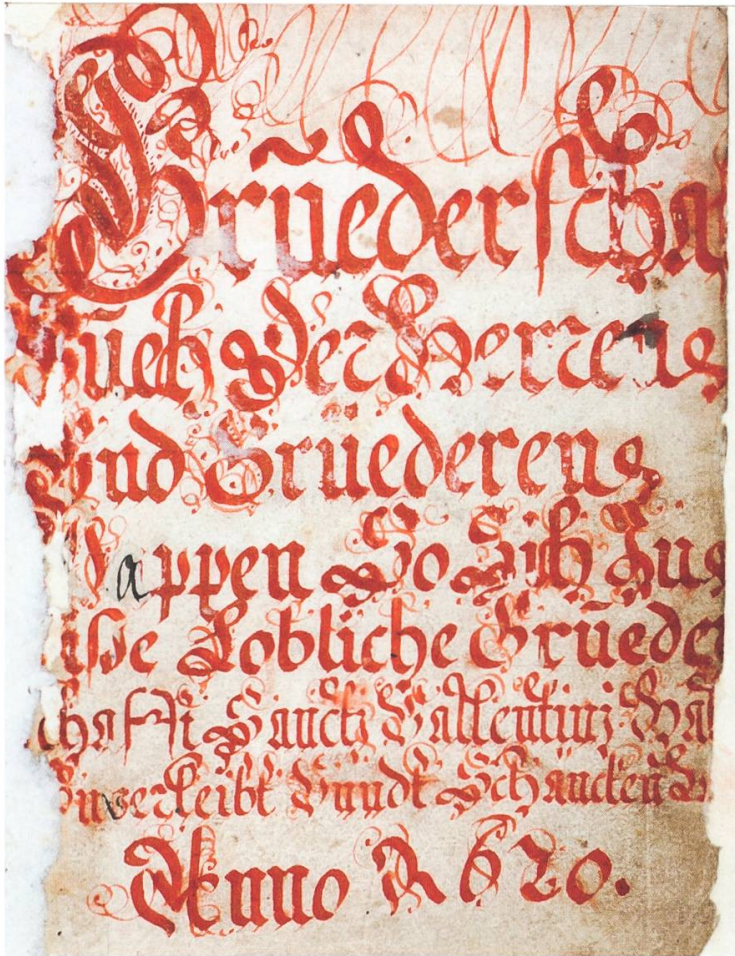 Brūederscha
Buech Der Herren
Vnd Brüederen
Wappen So Sich Jn
dise Lobliche Brūeder
schafft Sanct Vallentinj
Einverleibt Vnndt Schancken
Anno 1620.